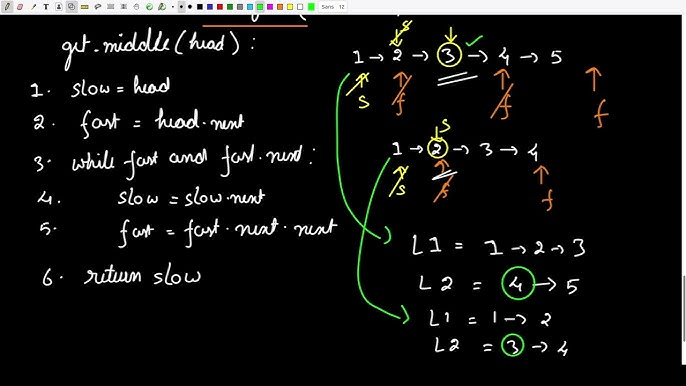 Sans 12
get_middle(head) :
1. slow = head
2. fast = head.next
3. while fast and fast.next :
4. slow = slow.next
5. fast = fast.next.next
6. return slow
s
1 → 2 → 3 → 4 → 5
s f f f
s
1 → 2 → 3 → 4
s f f
L1 = 1 → 2 → 3
L2 = 4 → 5
L1 = 1 → 2
L2 = 3 → 4